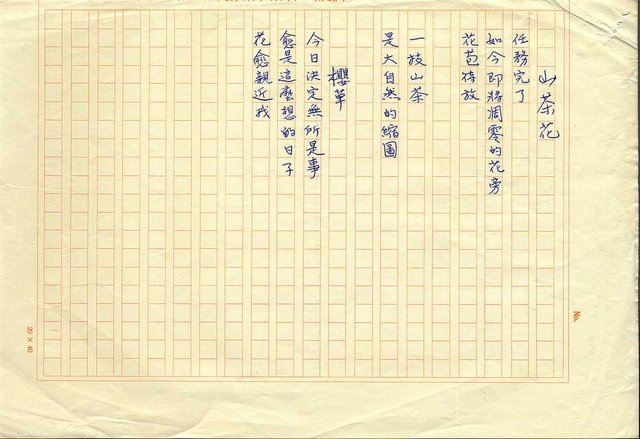 山茶花
任務完了
如今即將凋零的花旁
花苞待放
一枝山茶
是大自然的縮圖
櫻草
今日決定無所是事
愈是這麼想的日子
花愈親近我
No.
20 × 40